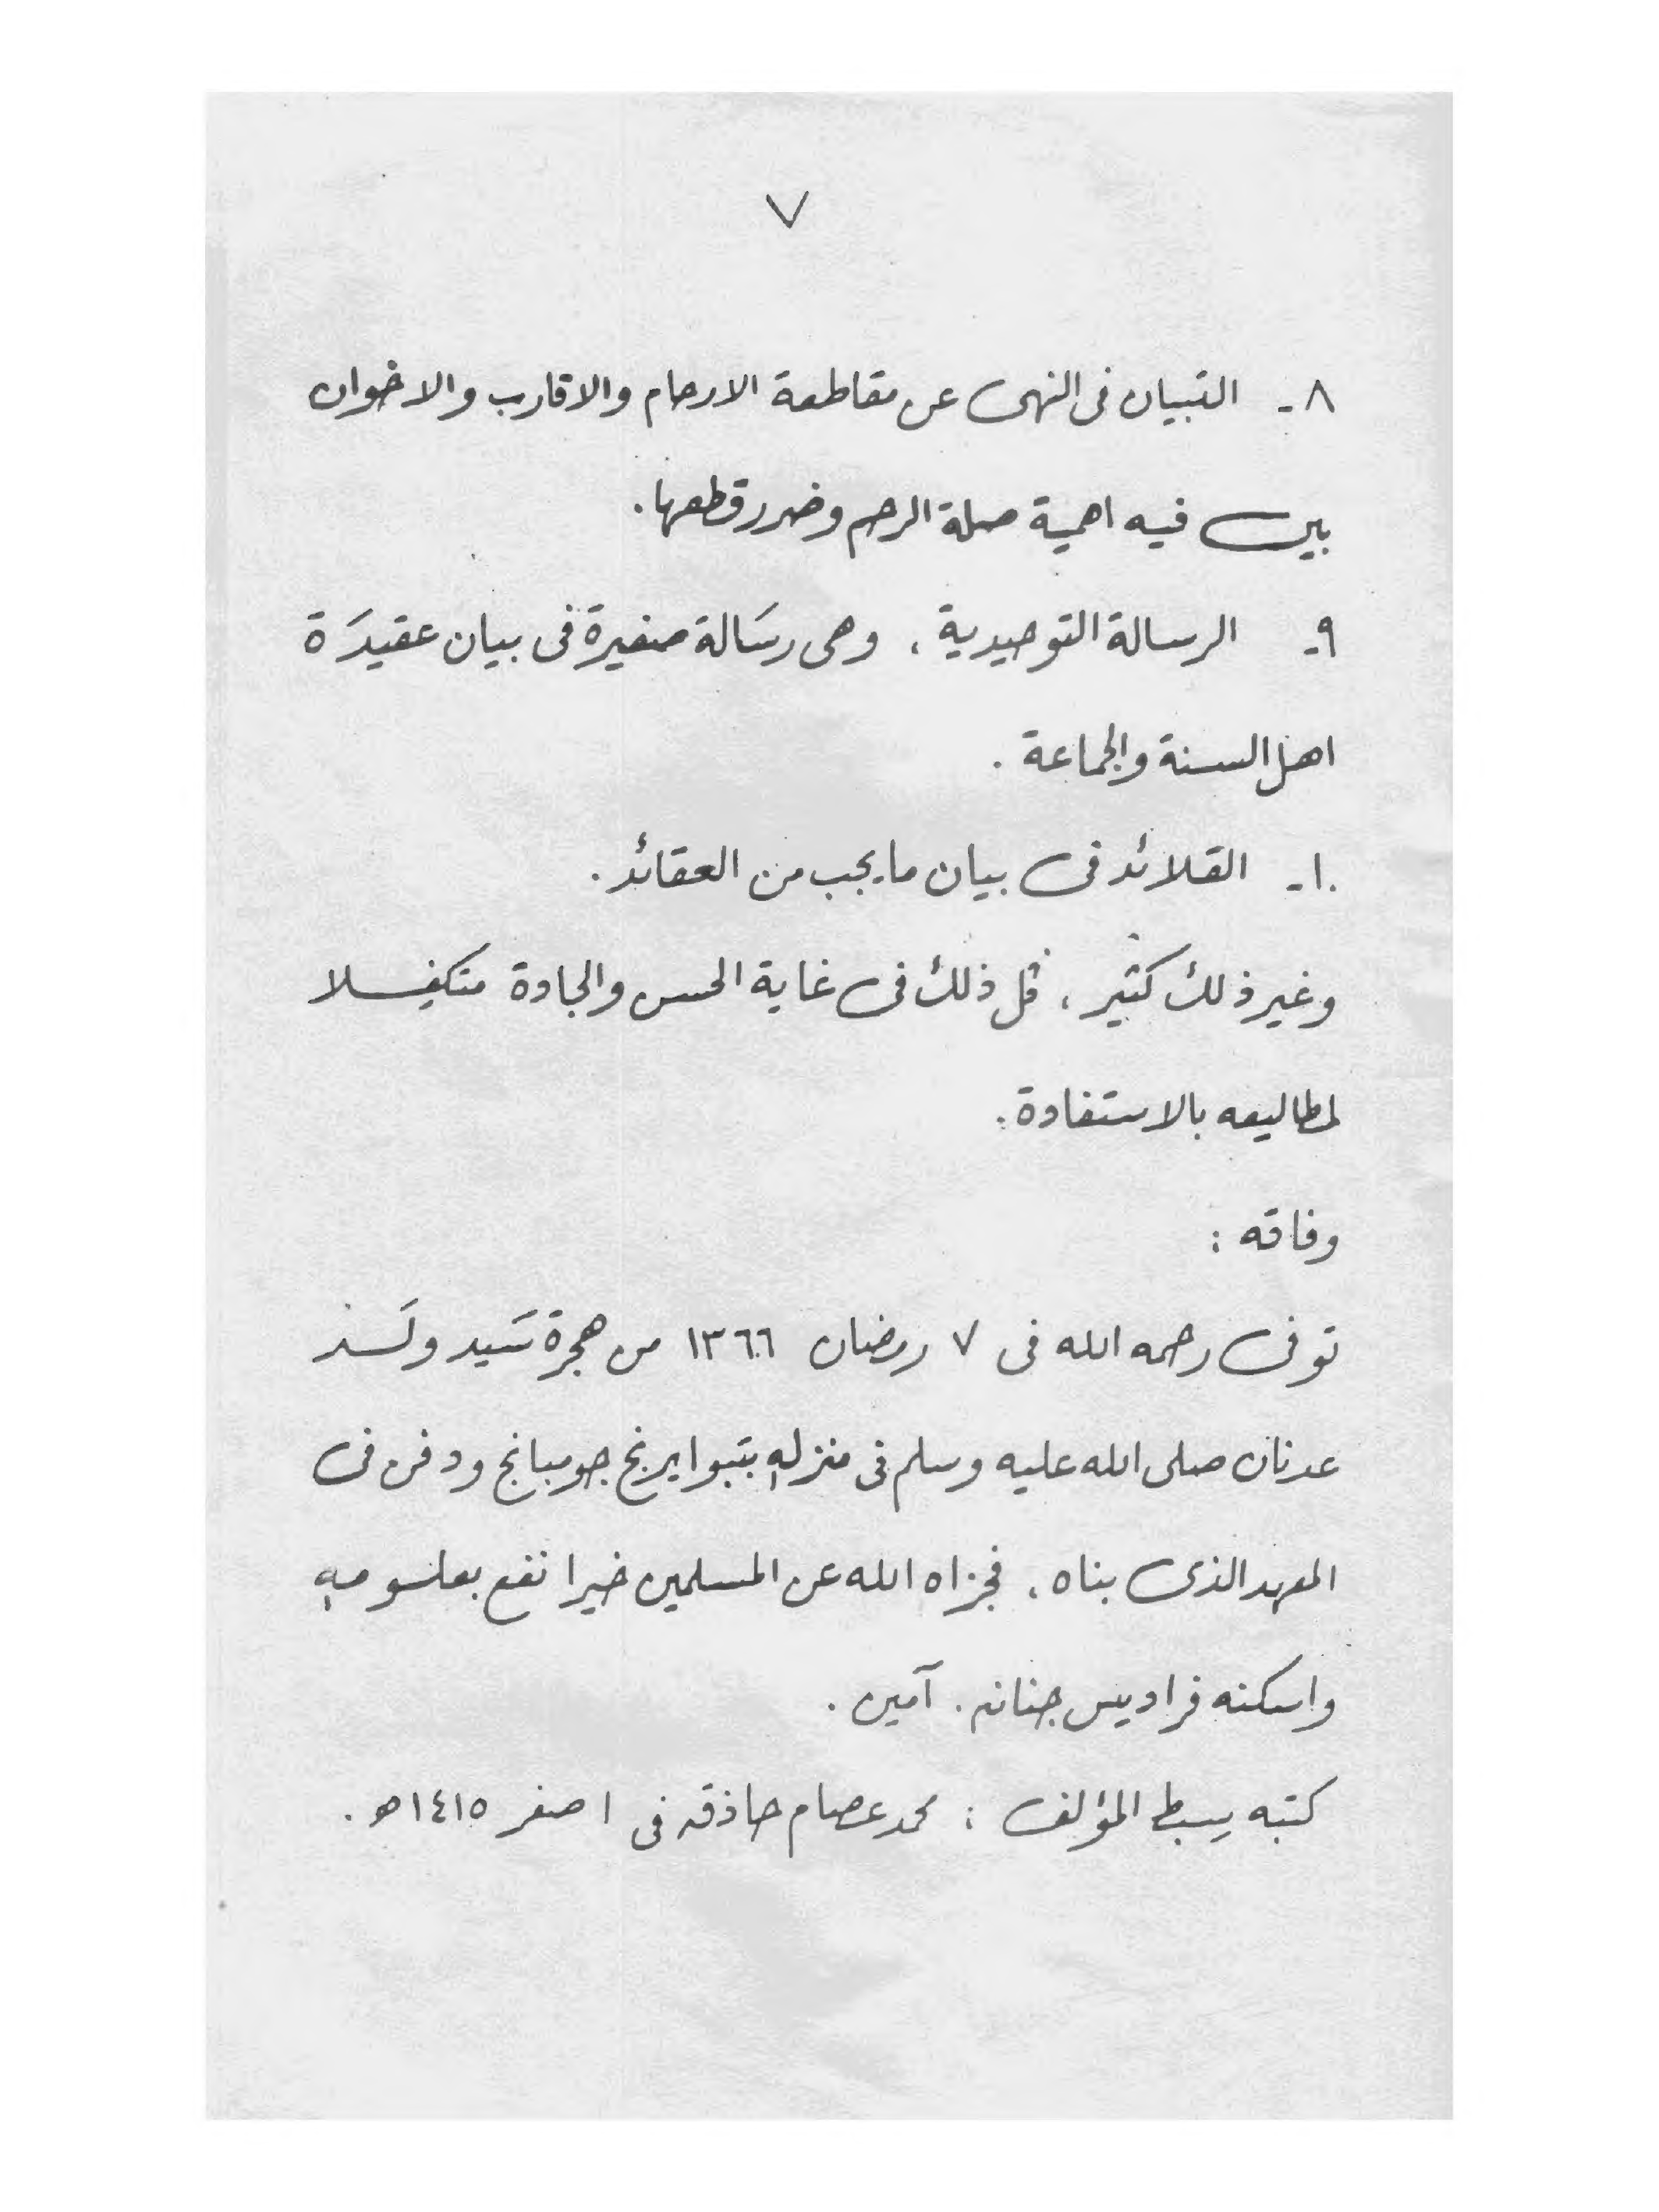 ٧
٨- التبيان فى النهى عن مقاطعة الارحام والاقارب والاخوان
بين فيه اهمية صلة الرحم وضرر قطعها.
٩- الرسالة التوحيدية، وهى رسَالة صغيرة فى بيان عقيدَة
اهل السنة والجماعة.
١٠- القلائد فى بيان ما يجب من العقائد.
وغير ذلك كثير، كل ذلك فى غاية الحسن والجادة متكفلا
لمطاليعه بالاستفادة.
وفاته:
توفى رحمه الله فى ٧ رمضان ١٣٦٦ من هجرة سَيد ولَد
عدنان صلى الله عليه وسلم فى منزله بتبوايرنج جومبانج ودفن فى
المعهد الذى بناه، فجزاه الله عن المسلمين خيرا نفع بعلومه
واسكنه فراديس جنانه. آمين.
كتبه سبط المؤلف: محمد عصام حاذق فى ١ صفر ١٤١٥هـ.